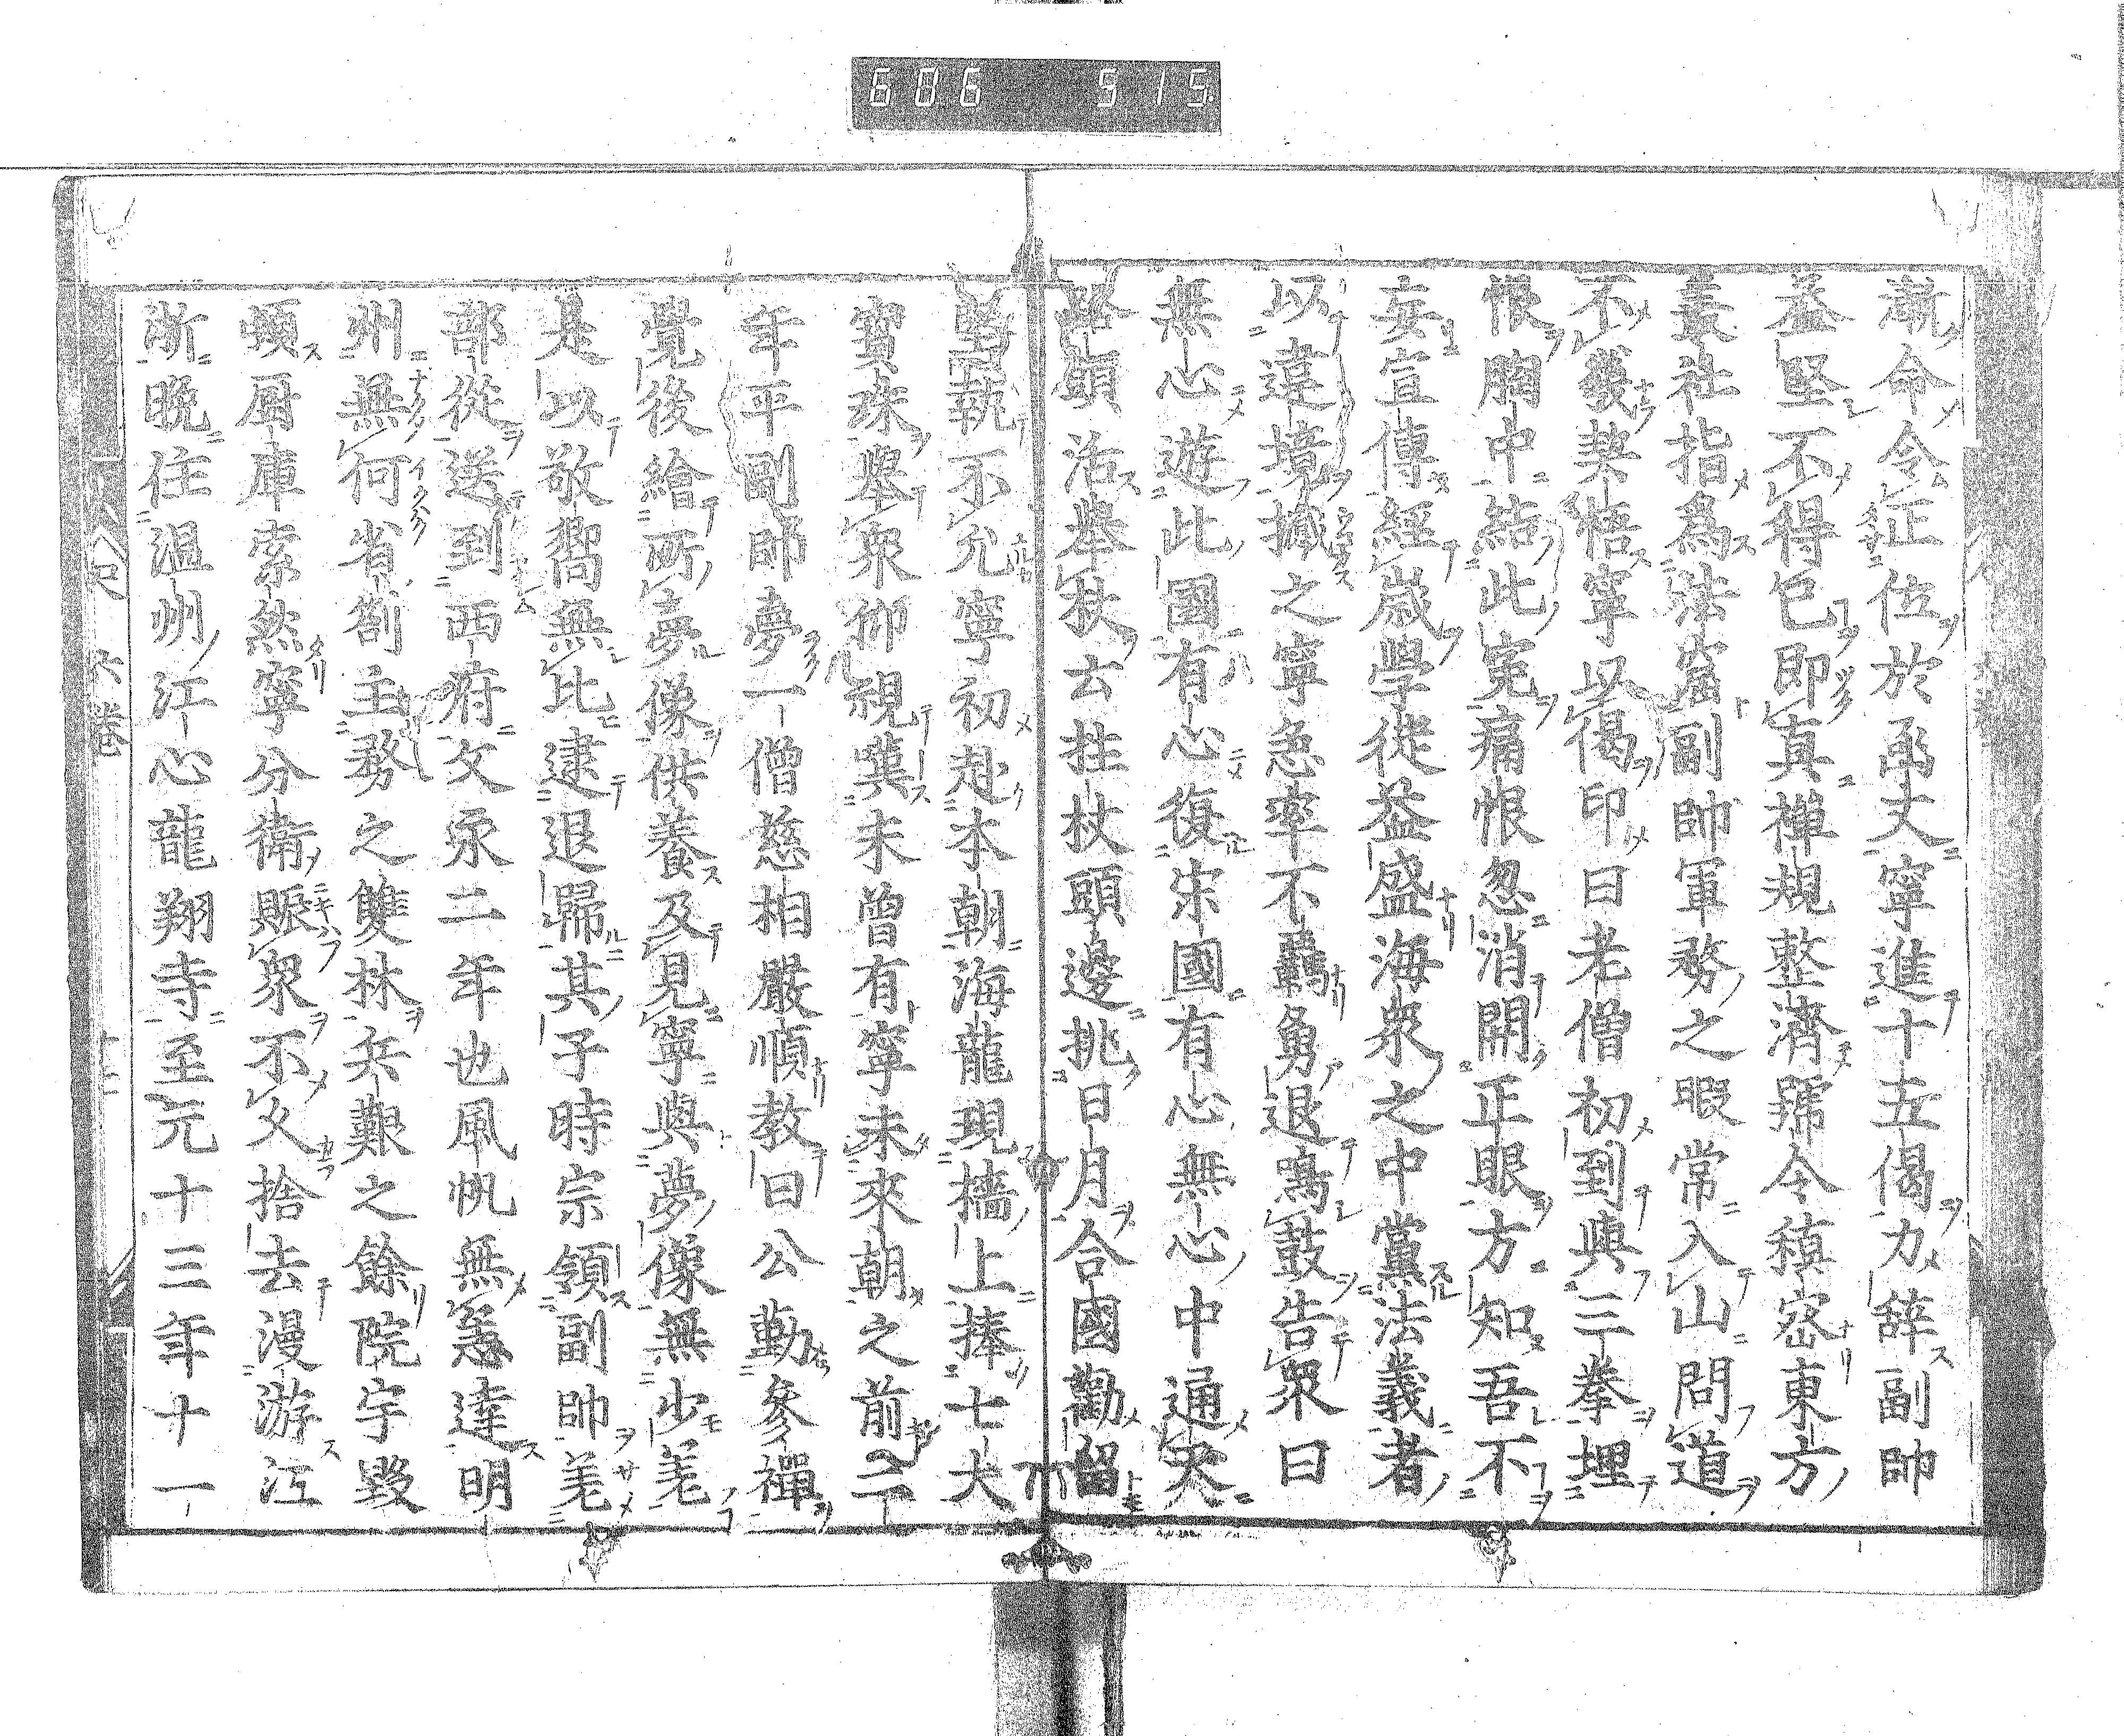 606 515
漸命令征位於函丈寧進十五偈力辞副帥
益堅不得已即真禅規整濟號令稹密東方
蓋社指為法窟副帥軍務之暇常入山問道
不幾契悟寧以偈印曰老僧初到與三拳埋
恨胸中結此冤痛恨忽消開正眼方知吾不
妄宣傳經歲學徒益盛海衆之中黨法義者
以違境撼之寧急率不羈勇退鳴鼓告衆曰
無心遊此國有心復宋國有心無心中通天
路頭活舉杖云拄杖頭邊挑日月合國勸留
堅執不允寧初赴本朝海龍現檣上捧七大
寶珠舉衆仰視嘆未曾有寧未來朝之前二
年平副帥夢一僧慈相嚴順教曰公勤參禪
覺後繪所夢像供養及見寧與夢像無少差
是以敬嚮無比逮退歸其子時宗領副帥差
部從送到西府文永二年也風帆無愆達明
州無何省劄主務之雙林兵艱之餘院宇毀
頽厨庫索然寧分衛賑衆不久捨去漫游江
浙晩住溫州江心龍翔寺至元十三年十一
六卷